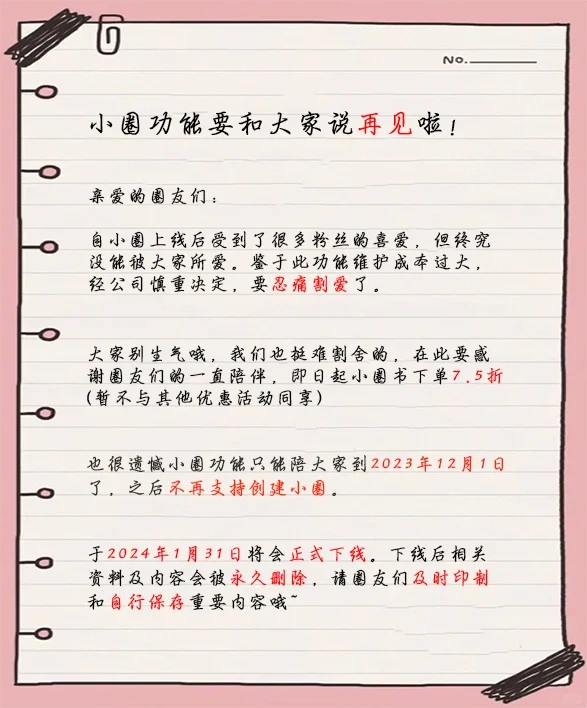 No.
小圈功能要和大家说再见啦!
亲爱的圈友们:
自小圈上线后受到了很多粉丝的喜爱,但终究
没能被大家所爱。鉴于此功能维护成本过大,
经公司慎重决定,要忍痛割爱了。
大家别生气哦,我们也挺难割舍的,在此要感
谢圈友们的一直陪伴,即日起小圈书下单7.5折
(暂不与其他优惠活动同享)
也很遗憾小圈功能只能陪大家到2023年12月1日
了,之后不再支持创建小圈。
于2024年1月31日将会正式下线。下线后相关
资料及内容会被永久删除,请圈友们及时印制
和自行保存重要内容哦~